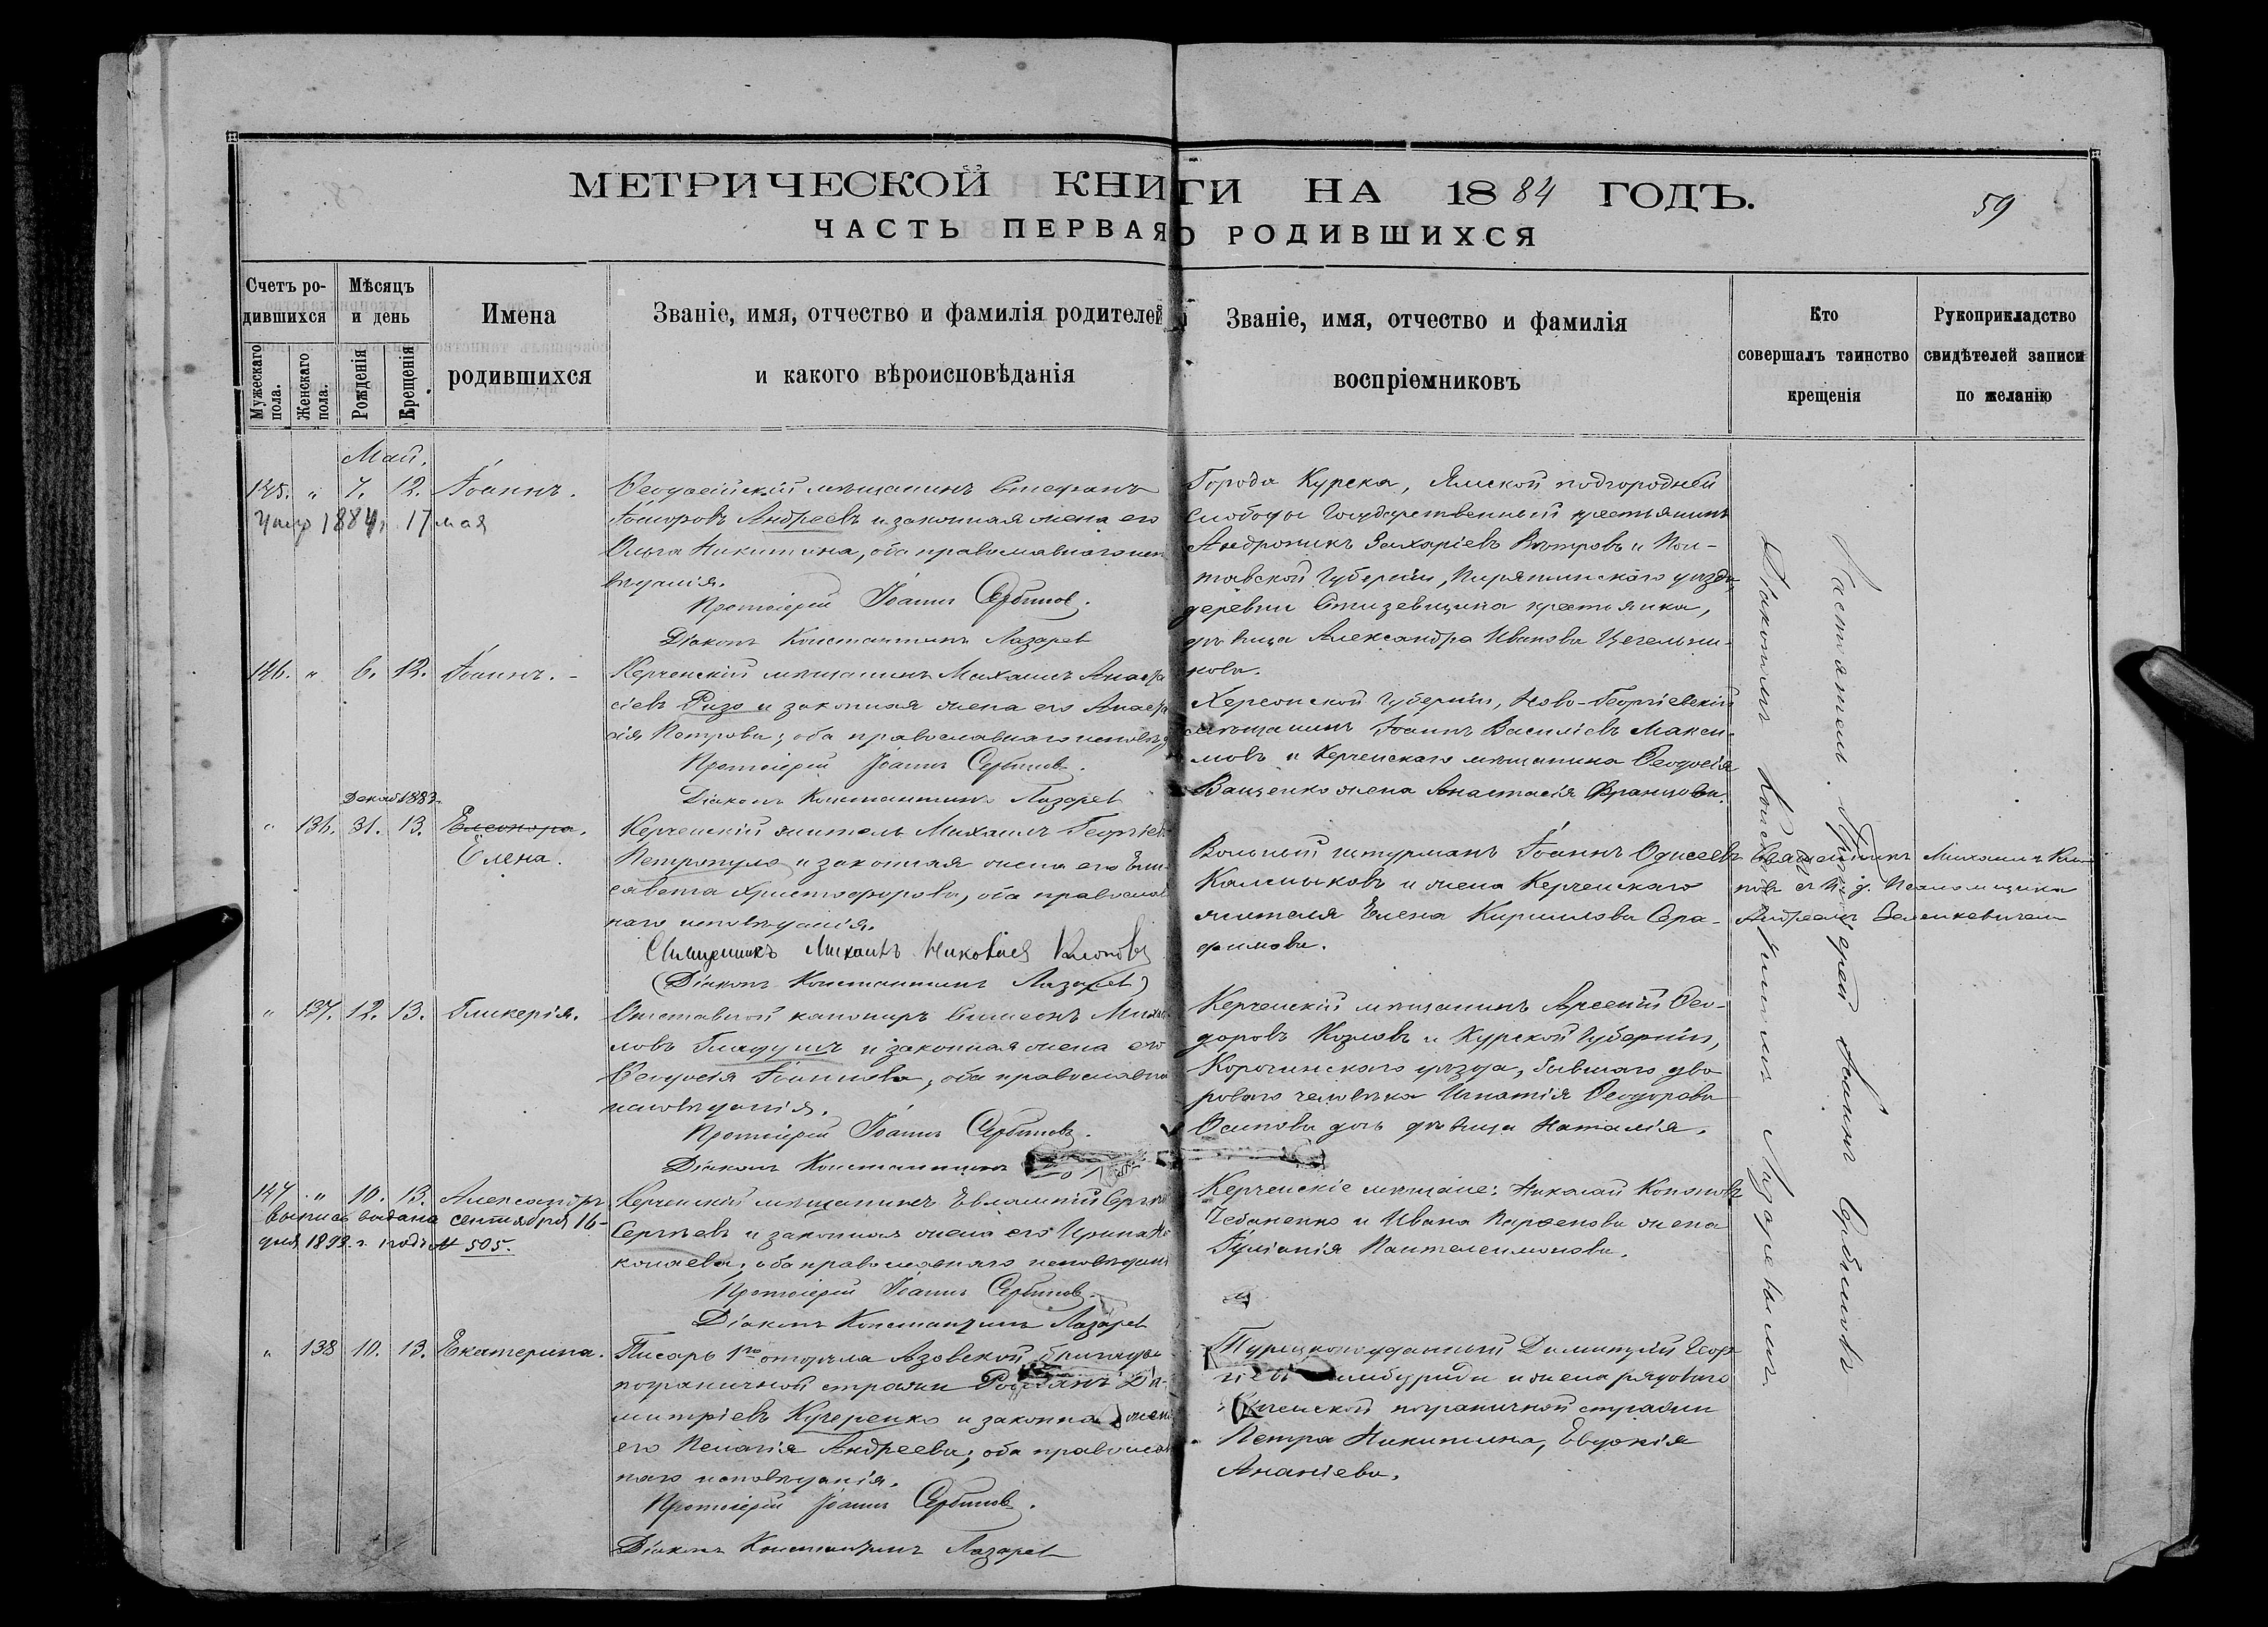 МЕТРИЧЕСКОЙ КНИГИ НА 1884 ГОДЪ.
59
ЧАСТЬ ПЕРВАЯ О РОДИВШИХСЯ
Счетъ ро-
дившихся
Мужескаго пола.
Женскаго пола.
Мѣсяцъ
и день
Рожденія
Крещенія
Имена
родившихся
Званіе, имя, отчество и фамилія родителей
и какого вѣроисповѣданія
Званіе, имя, отчество и фамилія
воспріемниковъ
Кто
совершалъ таинство
крещенія
Рукоприкладство
свидѣтелей записи
по желанію
Май.
145. " 7. 12. Іоаннъ.
1884 г. 17 мая
Ѳеодосійскій мѣщанинъ Стефанъ
Андреевъ и законная жена его
Ольга Никитина, оба православнаго испо
вѣданія.
Протоіерей Іоаннъ Сербиновъ.
Діаконъ Константинъ Лазаревъ
Города Курска, Ямской подгородней
слободы Государственный крестьянинъ
Андроникъ Захаріевъ Вѣтровъ и Пол-
тавской Губерніи, Пирятинскаго уѣзда,
деревни крестьянка,
дѣвица Александра Иванова Цегельни-
кова.
146. " 6. 12. Іоаннъ. -
Керченскій мѣщанинъ Михаилъ Анаста
сіевъ Ризо и законная жена его Анаста
сія Петрова; оба православнаго исповѣд
Протоіерей Іоаннъ Сербиновъ.
Діаконъ Константинъ Лазаревъ
Херсонской Губерніи, Ново-Георгіевскій
мѣщанинъ Іоаннъ Василіевъ Макси-
мовъ и Керченскаго мѣщанина Ѳеодосія
Ващенко жена Анастасія Францова.
Декаб. 1883.
" 136. 31. 13. Елеонора.
Елена.
Керченскій житель Михаилъ Георгіевъ
Петропуло и законная жена его Ели-
савета Христофорова, оба православ
наго исповѣданія.
Священникъ Михаилъ Николаев Клоповъ
(Діаконъ Константинъ Лазаревъ)
Вольный штурманъ Іоаннъ Одисеевъ
Калмыковъ и жена Керченскаго
жителя Елена Кириллова Сера-
фимова.
Священникъ Михаилъ Кло-
повъ съ И. д. Псаломщика
Андреемъ Зеленкевичемъ
" 137. 12. 13. Гликерія.
Отставной канониръ Симеонъ Михай
ловъ Гладушъ и законная жена его
Ѳеодосія Іоаннова, оба православна
исповѣданія.
Протоіерей Іоаннъ Сербиновъ.
Діаконъ Константинъ
Керченскій мѣщанинъ Арсеній Ѳео-
доровъ Козловъ и Курской Губерніи,
Корочинскаго уѣзда, бывшаго дво
роваго человѣка Игнатія Ѳеодорова
Осипова дочь дѣвица Наталія.
147. " 10. 13. Александръ
выпись выдана сентября 16-
дня 1899 г. подъ № 505.
Керченскій мѣщанинъ Евлампій Сергѣе
Сергѣевъ и законная жена его Ирина Ни
колаева; оба православнаго исповѣдані
Протоіерей Іоаннъ Сербиновъ.
Діаконъ Константинъ Лазаревъ
Керченскіе мѣщане: Николай Кононовъ
Чебаненко и Ивана Парѳенова жена
Іуліанія Пантелеимонова.
" 138 10. 13. Екатерина.
Писарь 1го отдѣла Азовской бригады
пограничной стражи Романъ Ди-
митріевъ Кучеренко и законная жена
его Пелагія Андреева; оба православ
наго исповѣданія.
Протоіерей Іоаннъ Сербиновъ.
Діаконъ Константинъ Лазаревъ
Турецкоподданный Димитрій Геор
гіевъ и жена рядоваго
Керченской пограничной стражи
Петра Никитина, Евдокія
Ананіева.
Настоятель Протоіерей Іоаннъ Сербиновъ
съ Діакономъ Константиномъ Лазаревымъ.